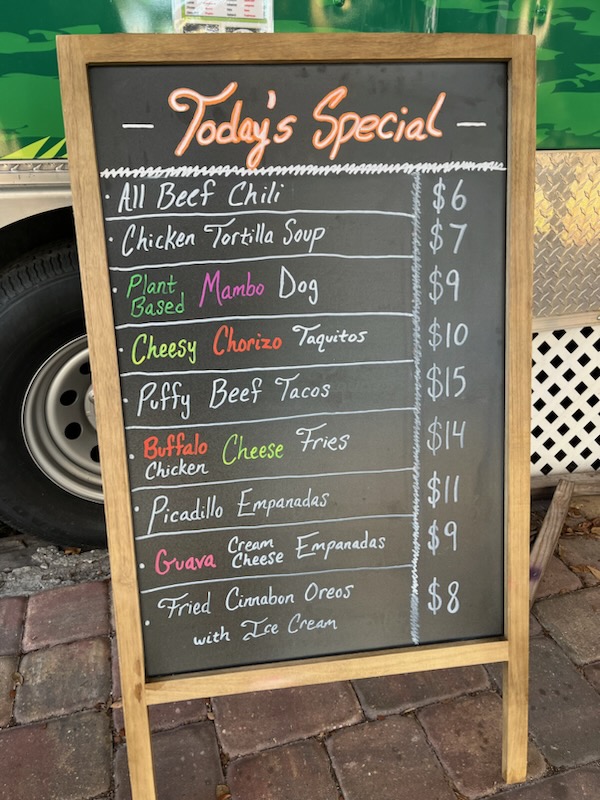 Today's Special
All Beef Chili $6
Chicken Tortilla Soup $7
Plant Based Mambo Dog $9
Cheesy Chorizo Taquitos $10
Puffy Beef Tacos $15
Buffalo Chicken Cheese Fries $14
Picadillo Empanadas $11
Guava Cream Cheese Empanadas $9
Fried Cinnabon Oreos $8
with Ice Cream